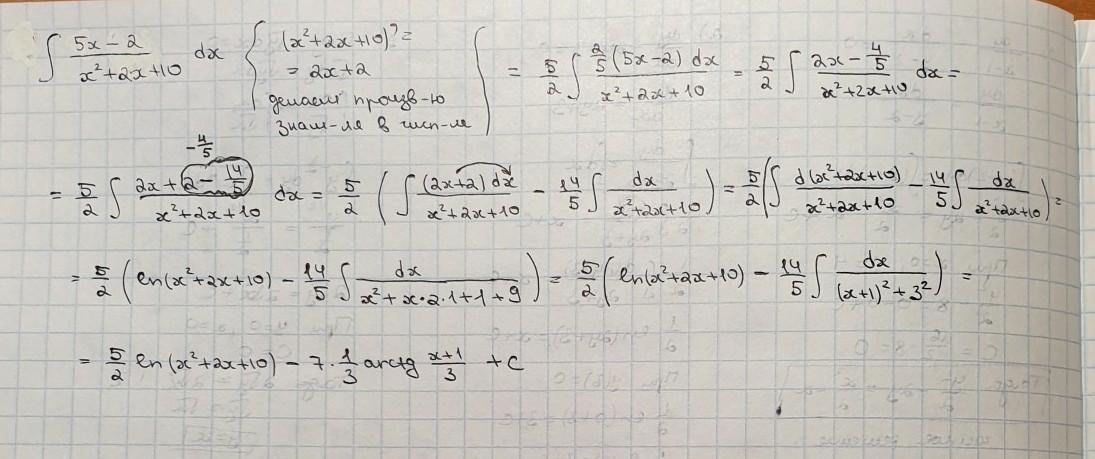 ∫ (5x − 2)/(x²+2x+10) dx { (x²+2x+10)' = = 2x+2 делаем произв-ю знам-ля в числ-ле } = 5/2 ∫ (2/5 (5x−2) dx)/(x²+2x+10) = 5/2 ∫ (2x − 4/5)/(x²+2x+10) dx =
−4/5
= 5/2 ∫ (2x + 2 − 14/5)/(x²+2x+10) dx = 5/2 ( ∫ ((2x+2) dx)/(x²+2x+10) − 14/5 ∫ dx/(x²+2x+10) ) = 5/2 ( ∫ d(x²+2x+10)/(x²+2x+10) − 14/5 ∫ dx/(x²+2x+10) ) =
= 5/2 ( ln(x²+2x+10) − 14/5 ∫ dx/(x²+x·2·1+1+9) ) = 5/2 ( ln(x²+2x+10) − 14/5 ∫ dx/((x+1)²+3²) ) =
= 5/2 ln(x²+2x+10) − 7 · 1/3 arctg (x+1)/3 + C